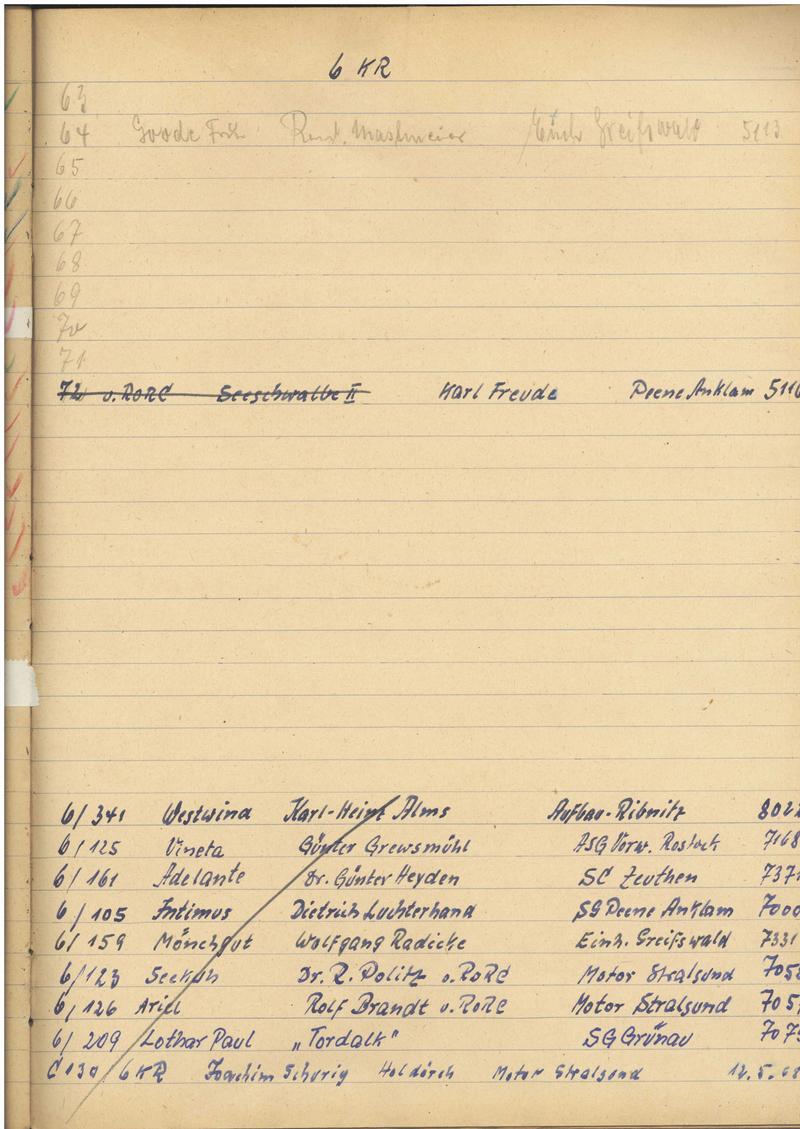 6 KR
63
64 Goode Rond. Mastmeier Einh Greifswald 5113
65
66
67
68
69
70
71
72 v. RORC Seeschwalbe II Karl Freude Peene Anklam 5116
6/341 Westwind Karl-Heinz Alms Aufbau-Ribnitz 802
6/125 Vineta Günter Grewsmühl ASG Vorw. Rostock 7168
6/161 Adelante Dr. Günter Heyden SC Zeuthen 737
6/105 Intimus Dietrich Luchterhand SG Peene Anklam 7000
6/159 Mönchgut Wolfgang Radicke Einh. Greifswald 7331
6/123 Seekuh Dr. R. Politz v. RORC Motor Stralsund 705
6/126 Ariel Rolf Brandt v. RORC Motor Stralsund 705
6/209 Lothar Paul „Tordalk“ SG Grünau 707
C 130 6 KR Joachim Schurig Motor Stralsund 12.5.